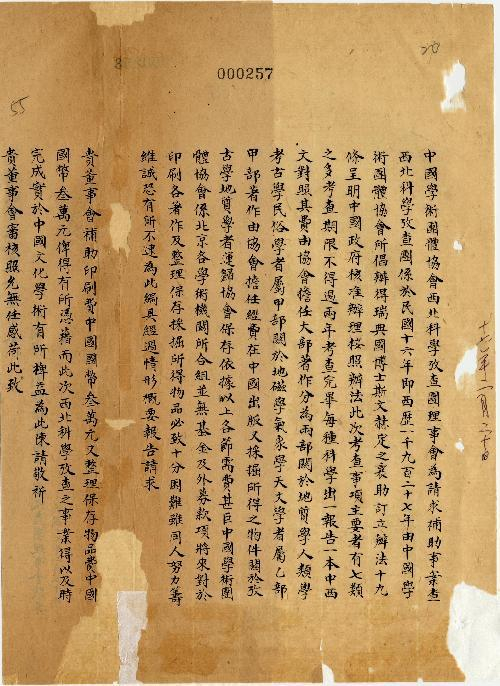 000257
55
中國學術團體協會西北科學攷查團理事會為請求補助事業查
西北科學攷查團係於民國十六年即西歷一千九百二十七年由中國學
術團體協會所倡辦得瑞典國博士斯文赫定之襄助訂立辦法十九
條呈明中國政府核准辦理按照辦法此次考查事項主要者有七類
之多考查期限不得過兩年考查完畢每種科學出一報告一本中西
文對照其費由協會擔任大部著作分為兩部關於地質學人類學
考古學民俗學者屬甲部關於地磁學氣象學天文學者屬乙部
甲部著作由協會擔任經費在中國出版又採掘所得之物件關於攷
古學地質學者運歸協會保存依據以上各節需費甚巨中國學術團
體協會係北京各學術機關所合組並無基金及外募款項將來對於
印刷各著作及整理保存採掘所得物品必致十分困難雖同人努力籌
維誠恐有所不逮為此編具經過情形概要報告請求
貴董事會補助印刷費中國國幣叁萬元又整理保存物品費中國
國幣叁萬元俾得有所憑藉而此次西北科學攷查之事業得以及時
完成實於中國文化學術有所裨益為此陳請敬祈
貴董事會審核照允無任感荷此致